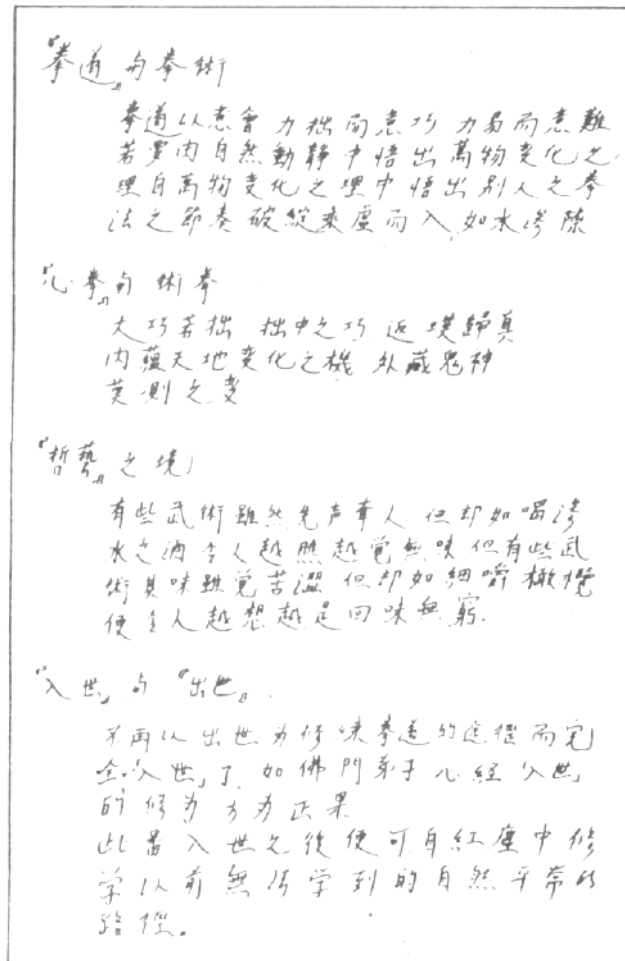 「拳道」与拳術
拳道以意會 力拙而意巧 力易而意難
若要由自然動静中悟出萬物变化之
理自萬物变化之理中悟出别人之拳
法之節奏破綻乘虛而入,如水滲隙
「心拳」与術拳
大巧若拙 拙中之巧 返璞歸真
内蘊天地变化之機 外藏鬼神
莫測之变
「哲藝」之境
有些武術雖然先声奪人 但却如喝滲
水之酒令人越 越覚無味但有些武
術其味雖覚苦澀 但却如細嚼橄欖
便令人越想越是回味無窮.
「入世」与「出世」
不再以出世为修 拳道的途徑而完
全「入世」了 如佛門弟子 必経「入世」
的修为方为正果
此番入世之後便可自紅塵中修
学以前無法学到的自然平常的
路徑。